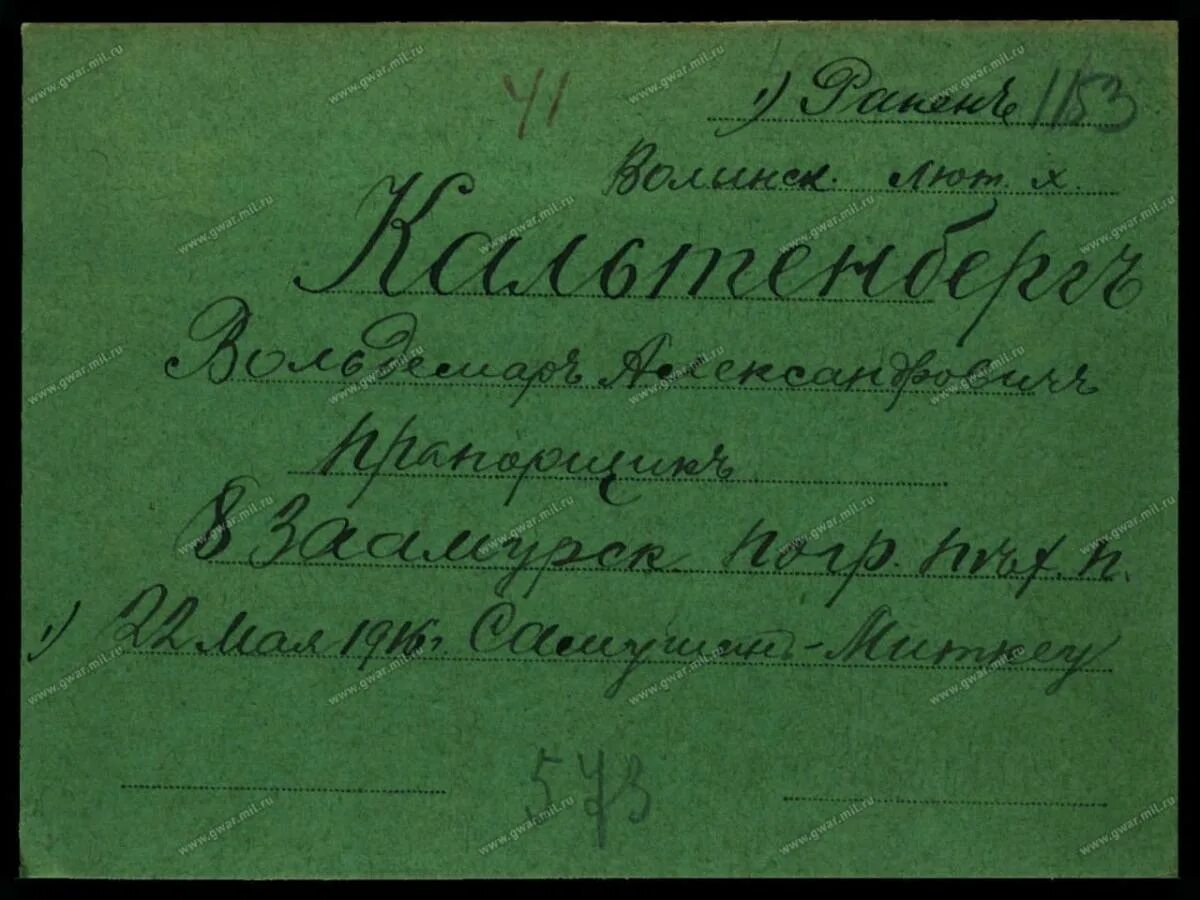 41
1) Раненъ 1153
Волинск. лют. х.
Кальтенбергъ
Вольдемаръ Александровичъ
прапорщикъ
8 Заамурск. погр. пѣх. п.
1) 22 Мая 1916 г. Самушин -Миткеу
573
www.gwar.mil.ru